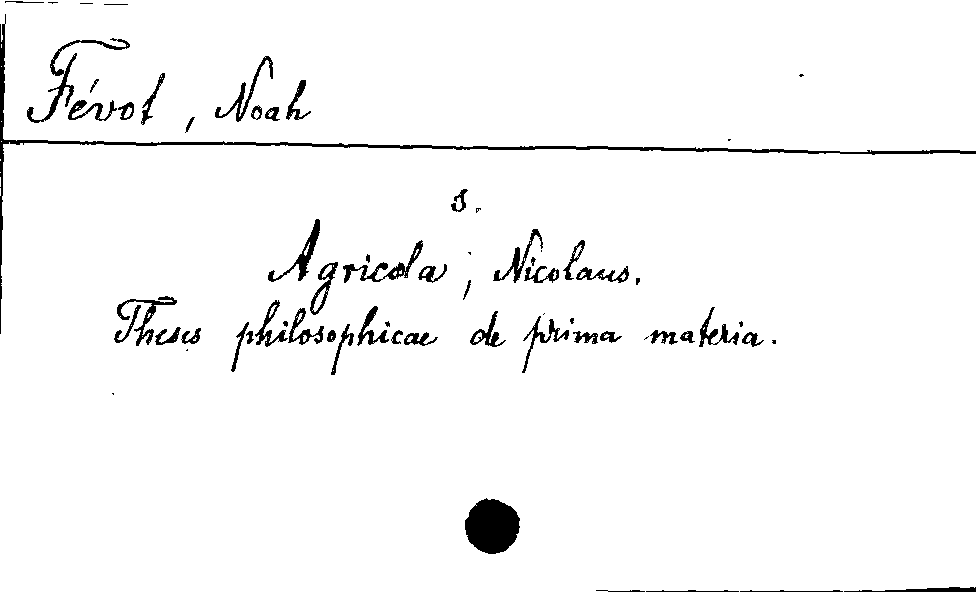 Févot, Noah
s.
Agricola, Nicolaus.
Theses philosophicae de prima materia.